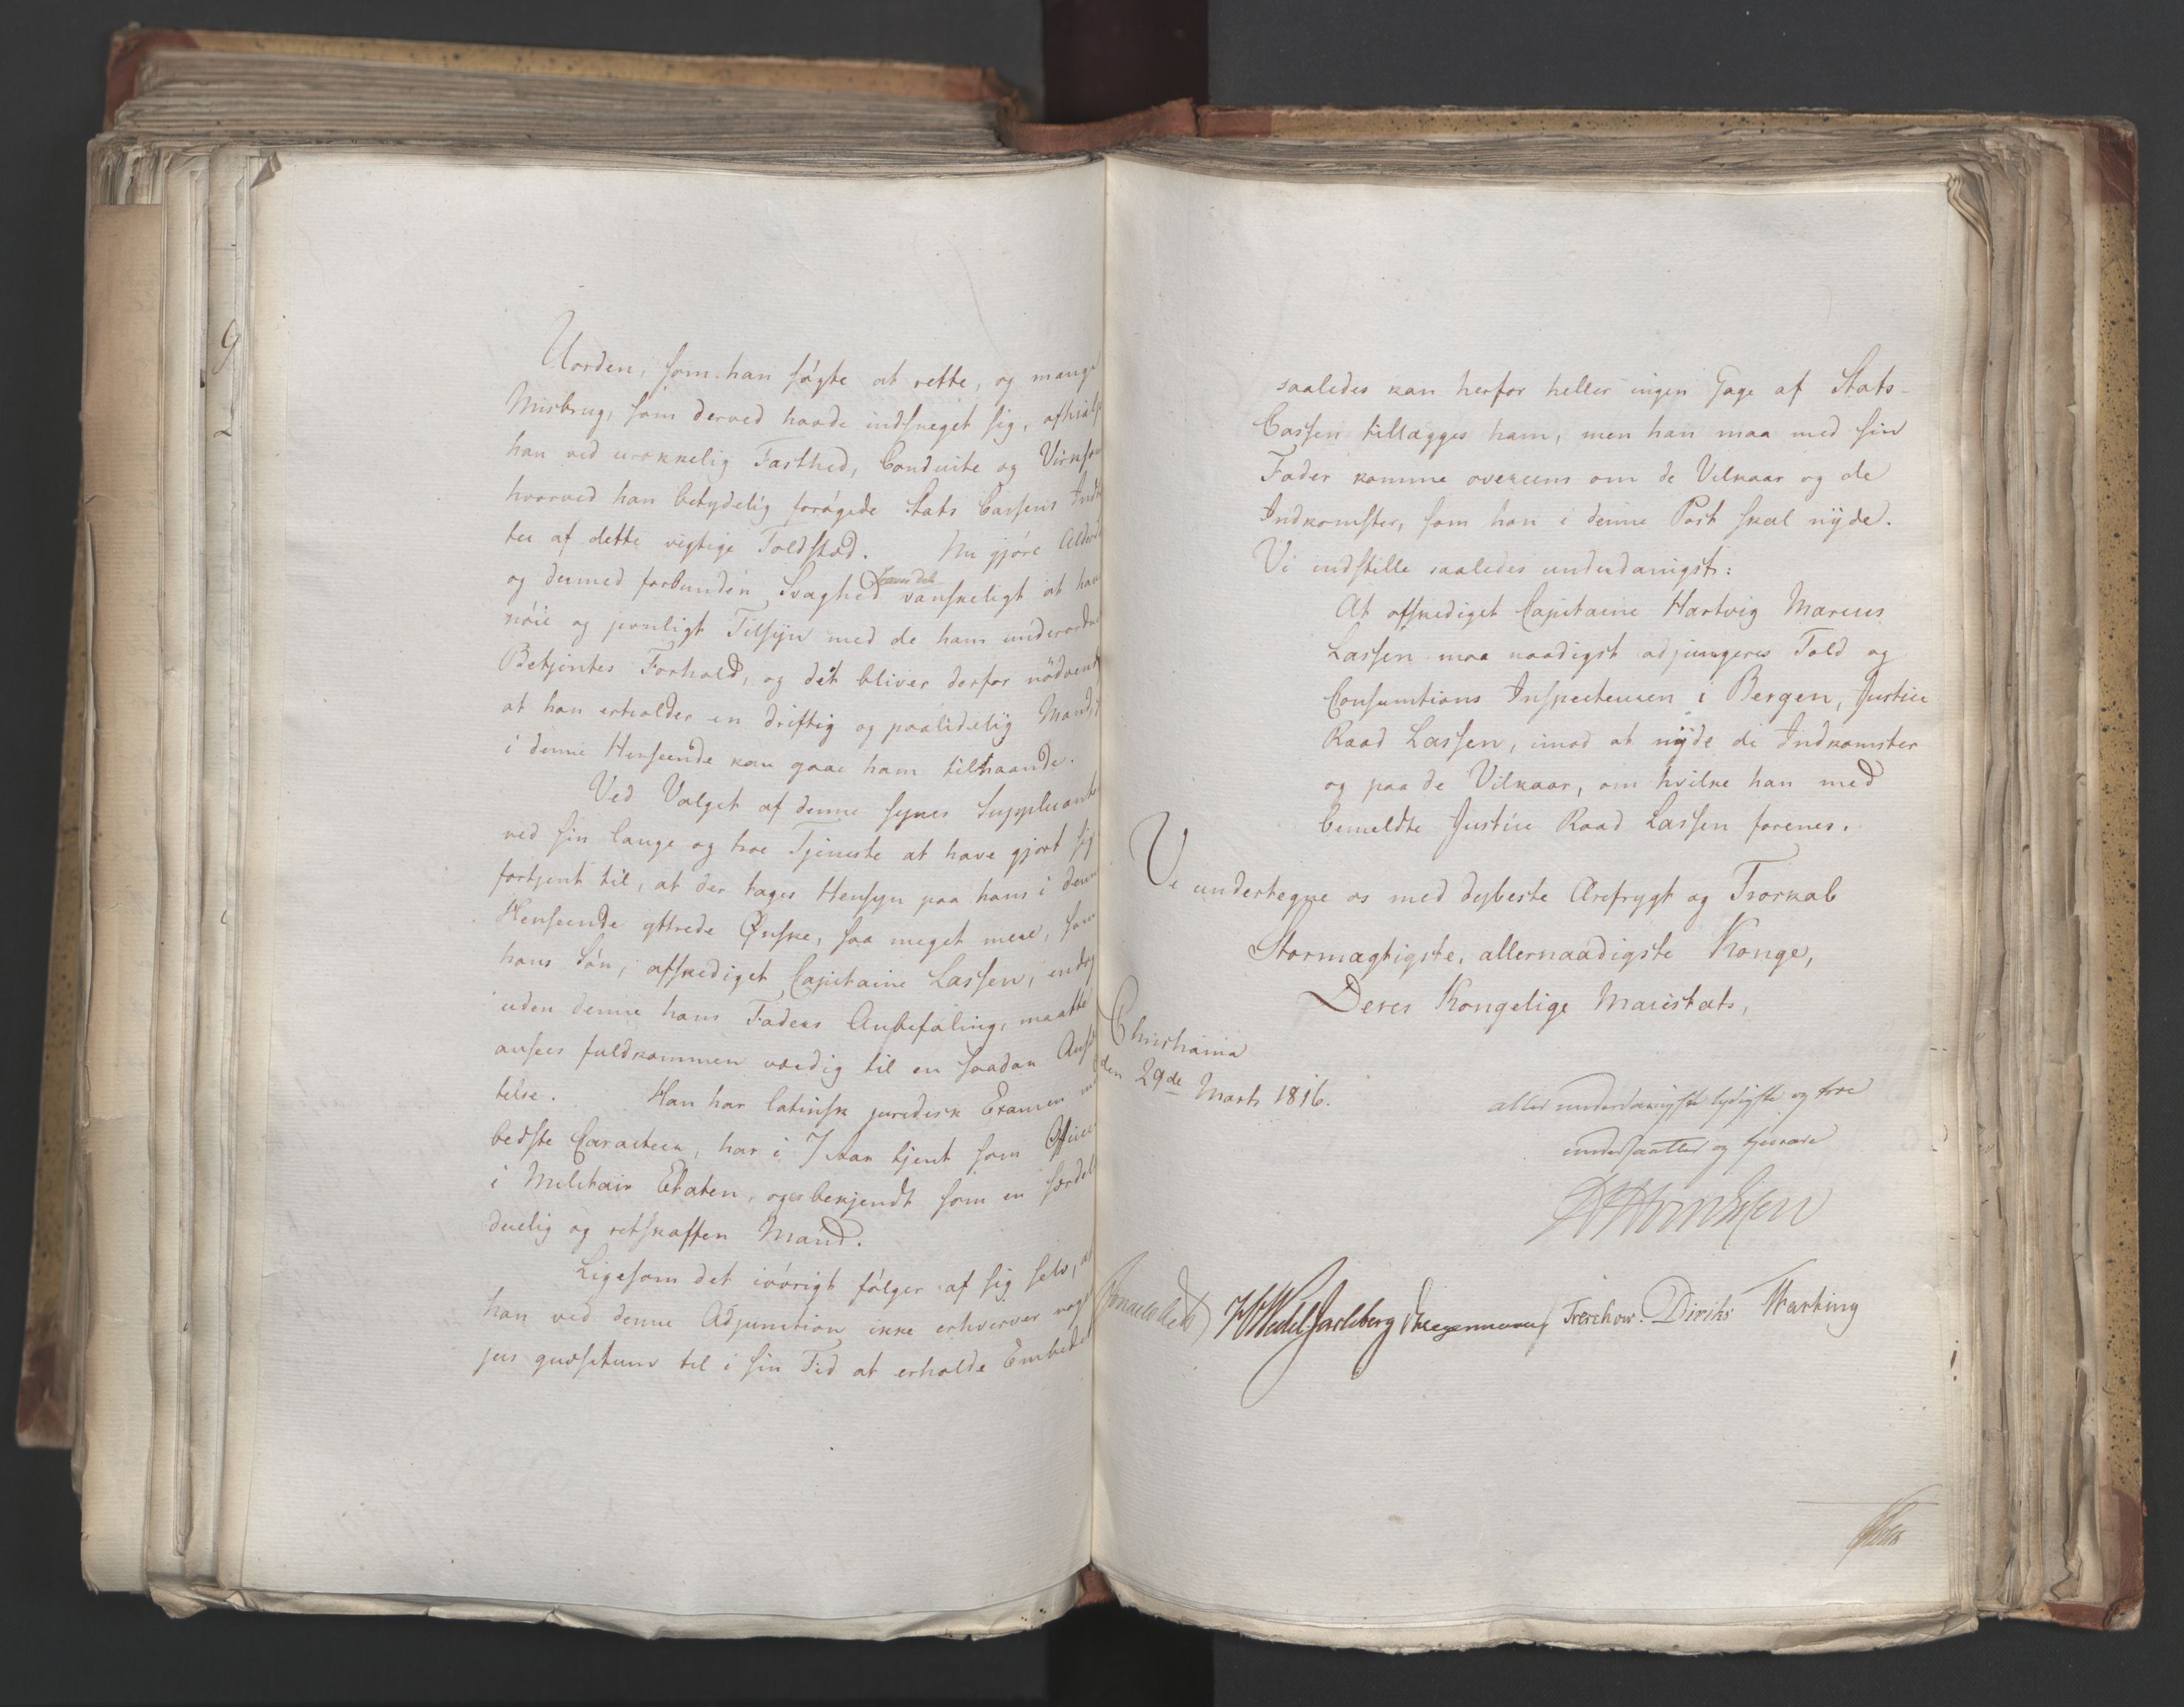 Uorden, som han søgte at rette, og mange
Misbrug, som derved havde indsneget sig, afhialp
han ved urokkelig Fasthed, Conduite og Virksom
hvorved han betydelig forøgede Stats Cassens Indk
ter af dette vigtige Toldsted. Nu gjøre Alderd
og dermed forbunden Svaghed vanskeligt at have
nøie og jevnligt Tilsyn med de ham underordn
Betjentes Forhold, og det bliver derfor nödvend
at han erholder en driftig og paalidelig Mand,
i denne Henseende kan gaae ham tilhaande.
Ved Valget af denne synes Supplicant
ved sin lange og troe Tjeneste at have gjort sig
fortjent til, at der tages Hensyn paa hans i denn
Henseende yttrede Ønske, saa meget mere, som
hans Søn, afskediget Capitaine Lassen, endog
uden denne hans Faders Anbefaling, maatte
ansees fuldkommen værdig til en saadan Ansæ
telse. Han har latinsk juridisk Examen med
bedste Caracteer, har i 7 Aar tjent som Officer
i Militair Etaten, og er bekjendt som en særdel
duelig og retskaffen Mand.
Ligesom det iøvrigt følger af sig selv, at
han ved denne Adjunction ikke erhverver noget
jus quæsitum til i sin Tid at erholde Embedet
saaledes kan herfor heller ingen Gage af Stats-
Cassen tillægges ham, men han maa med sin
Fader komme overeens om de Vilkaar og de
Indkomster, som han i denne Post skal nyde.
Vi indstille saaledes underdanigst:
At afskediget Capitaine Hartvig Marcus
Lassen maa naadigst adjungeres Told og
Consumtions Inspecteuren i Bergen, Justice
Raad Lassen, imod at nyde de Indkomster
og paa de Vilkaar, om hvilke han med
bemeldte Justice Raad Lassen forenes.
Vi undertegne os med dybeste Ærefrygt og Troskab
Stormægtigste, allernaadigste Konge,
Deres Kongelige Maiestæts,
Christiania
den 29de Marts 1816.
allerunderdanigste lydigste og troe
undersaatter og tjenere
Sommerfeldt HWedelJarlsberg Krogemann Treschow. Diriks Thesting